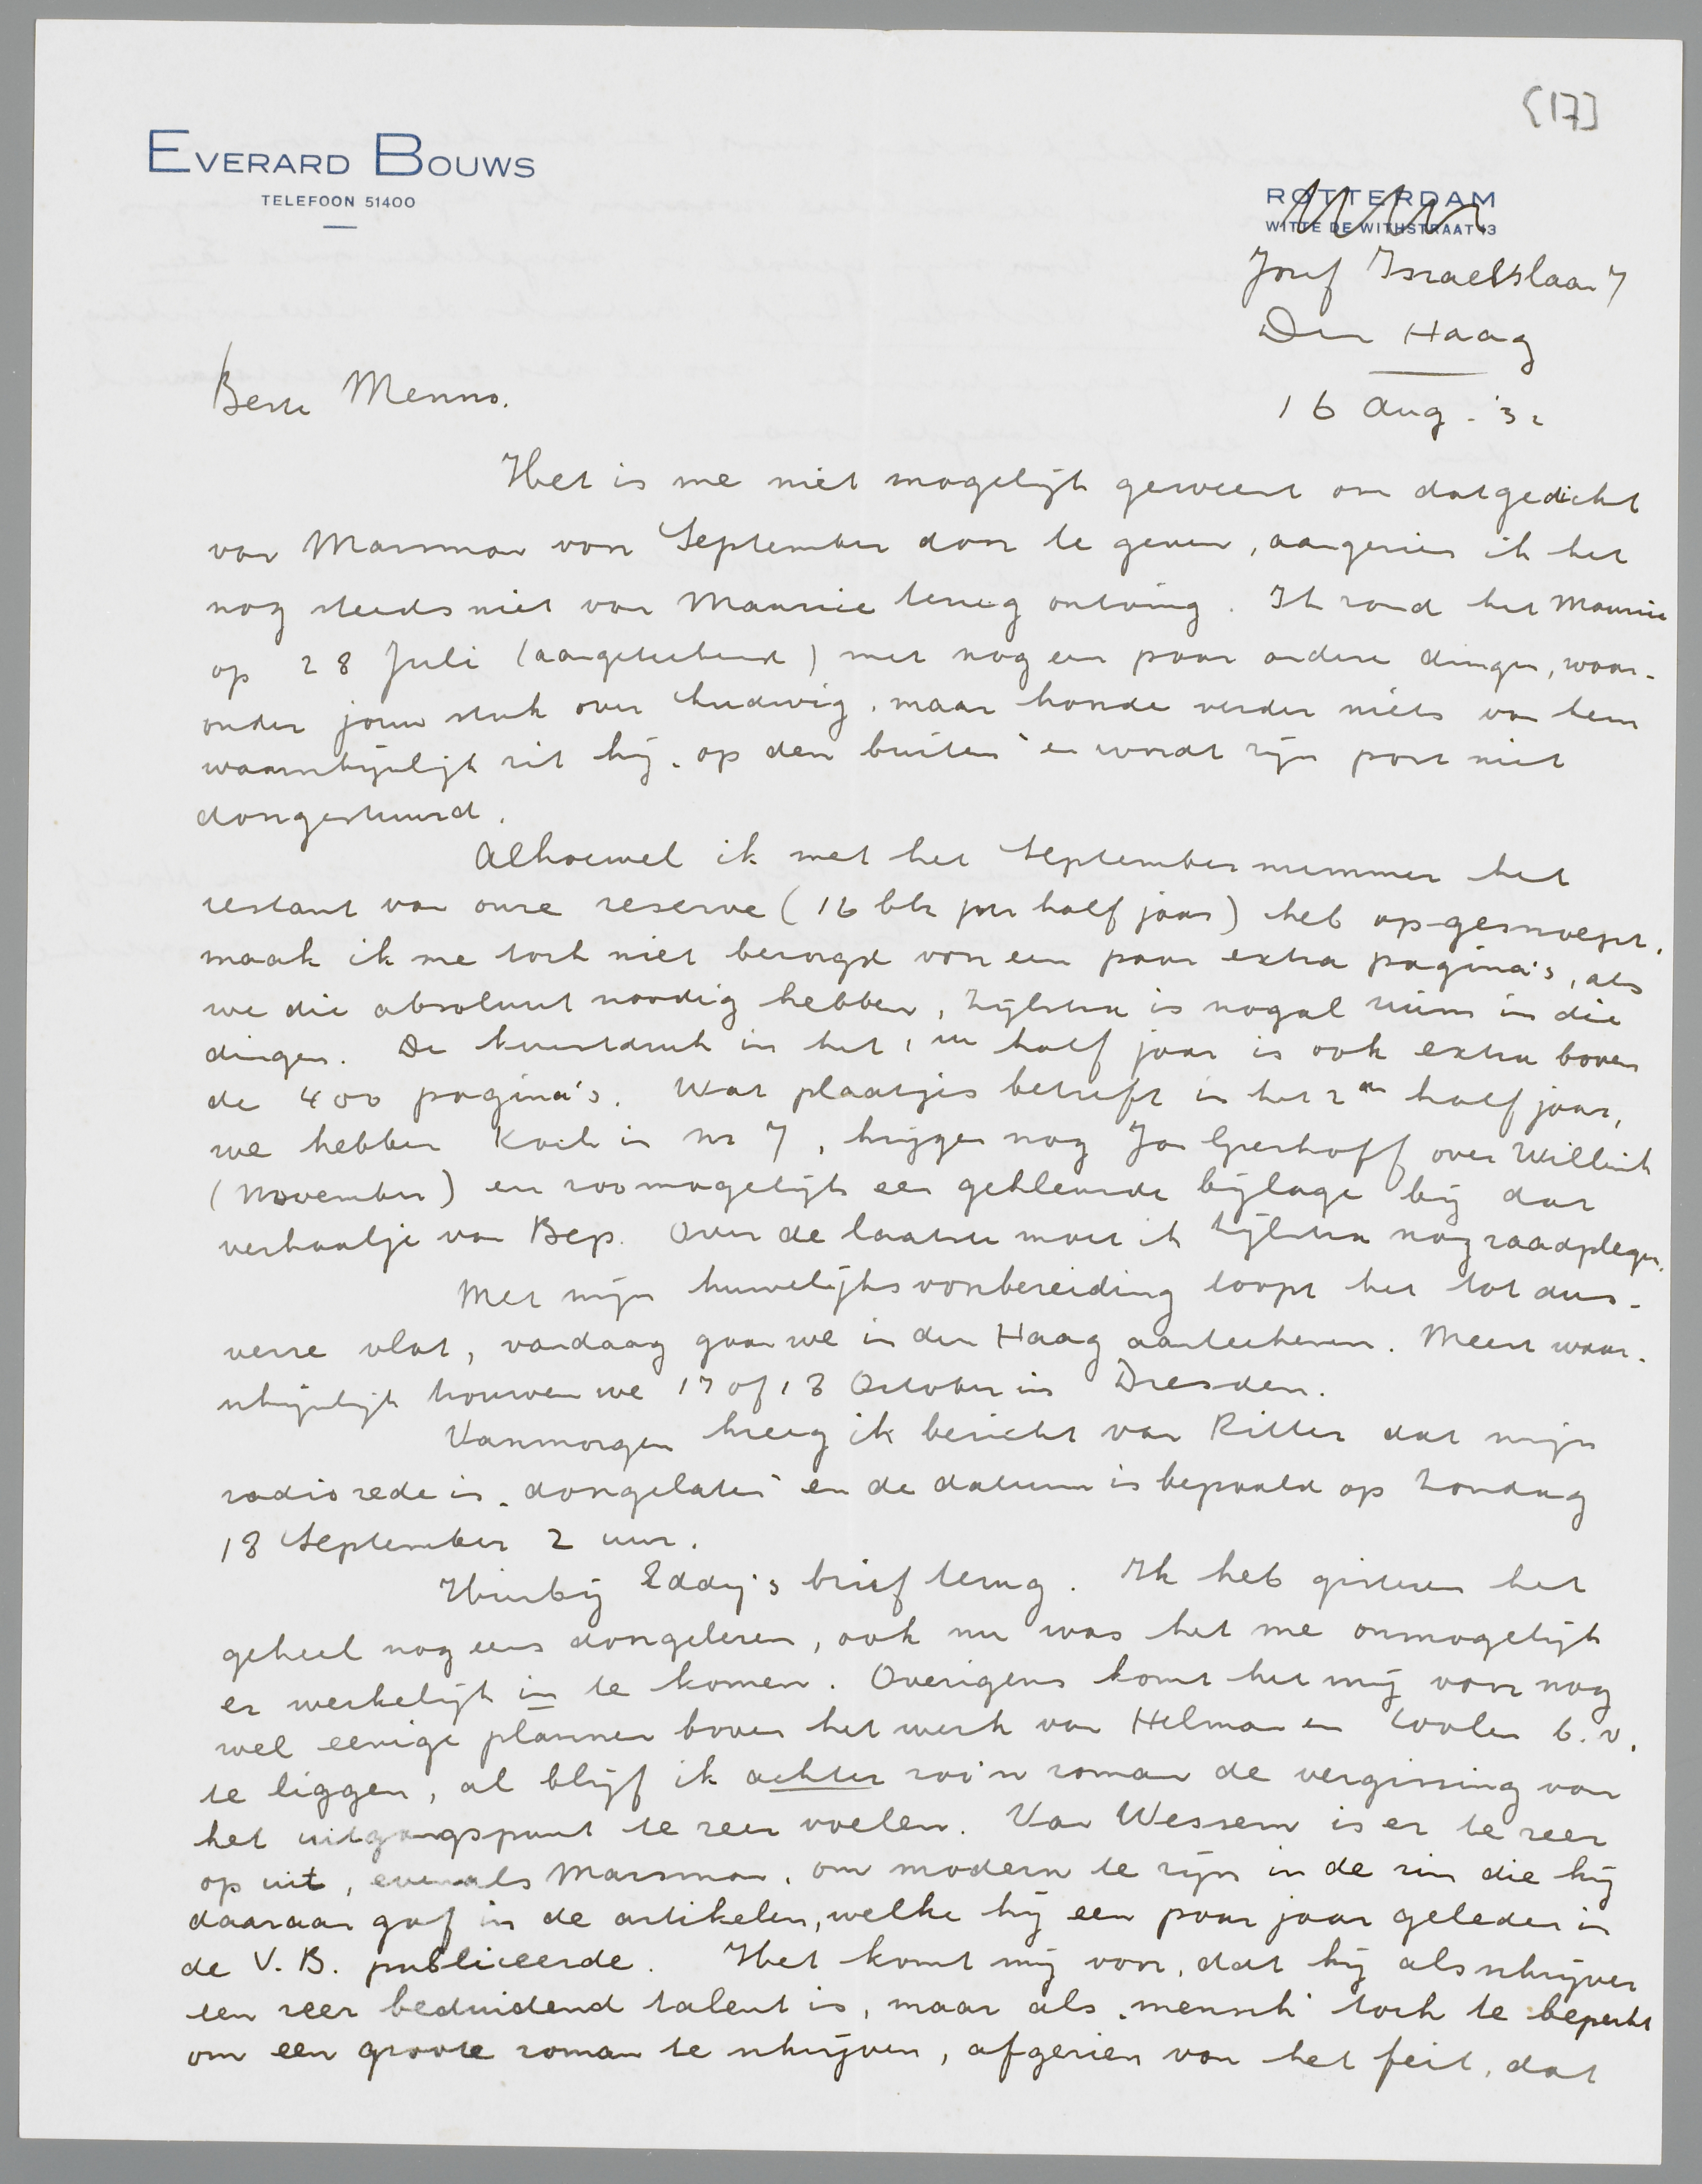 [17]
EVERARD BOUWS
TELEFOON 51400
ROTTERDAM
WITTE DE WITHSTRAAT 13
Josef Israelslaan 7
Den Haag
16 Aug. '32
Beste Menno.
Het is me niet mogelijk geweest om dat gedicht
van Marsman voor September door te geven, aangezien ik het
nog steeds niet van Maurice terug ontving. Ik zond het Maurice
op 28 Juli (aangeteekend) met nog een paar andere dingen, waar-
onder jouw stuk over Ludwig, maar hoorde verder niets van hem
waarschijnlijk zit hij „op den buiten" en wordt zijn post niet
doorgestuurd.
Alhoewel ik met het Septembernummer het
restant van onze reserve (16 blz per half jaar) heb opgesnoept,
maak ik me toch niet bezorgd voor een paar extra pagina's, als
we die absoluut noodig hebben, Zijlstra is nogal ruim in die
dingen. De kunstdruk in het 1ste half jaar is ook extra boven
de 400 pagina's. Wat plaatjes betreft in het 2de half jaar,
we hebben Koch in nr 7, krijgen nog Jan Greshoff over Willink
(November) en zoo mogelijk een gekleurde bijlage bij dat
verhaaltje van Bep. Over de laatste moet ik Zijlstra nog raadplegen.
Met mijn huwelijksvoorbereiding loopt het tot dus-
verre vlot, vandaag gaan we in den Haag aanteekenen. Meest waar-
schijnlijk trouwen we 17 of 18 October in Dresden.
Vanmorgen kreeg ik bericht van Ritter dat mijn
radiorede is „doorgelaten" en de datum is bepaald op Zondag
18 September 2 uur.
Hierbij Eddy's brief terug. Ik heb gisteren het
geheel nog eens doorgelezen, ook nu was het me onmogelijk
er werkelijk in te komen. Overigens komt het mij voor nog
wel eenige plannen boven het werk van Helman en Coolen b.v.
te liggen, al blijf ik achter zoo'n roman de vergissing van
het uitgangspunt te zeer voelen. Van Wessem is er te zeer
op uit, evenals Marsman, om modern te zijn in de zin die hij
daaraan gaf in de artikelen, welke hij een paar jaar geleden in
de V.B. publiceerde. Het komt mij voor, dat hij als schrijver
een zeer beduidend talent is, maar als „mensch" toch te beperkt
om een groote roman te schrijven, afgezien van het feit, dat